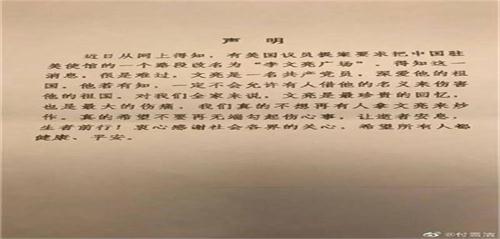 声 明
近日从网上得知,有美国议员提案要求把中国驻
美使馆的一个路段改名为“李文亮广场”,得知这一
消息,很是难过,文亮是一名共产党员,深爱他的祖
国,他若有知,一定不会允许有人借他的名义来伤害
他的祖国,对我们全家来说,文亮是最珍贵的回忆,
也是最大的伤痛,我们真的不想再有人拿文亮来炒
作,真的希望不要再无端勾起伤心事,让逝者安息,
生者前行!衷心感谢社会各界的关心,希望所有人都
健康、平安。
@付雪洁